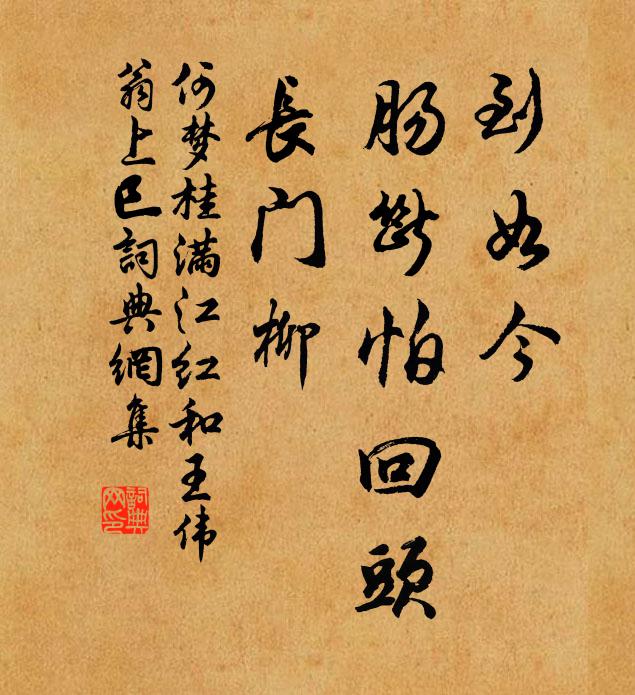 到如今
肠斷怕回頭
長门柳
何梦桂满江红和王伟
翁上巳詞典網集
詞典网印